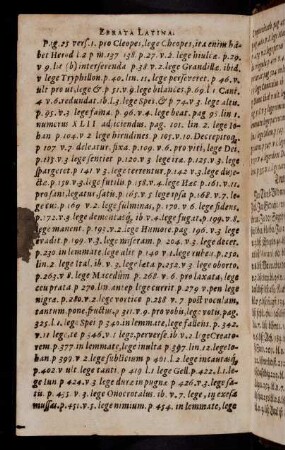 ERRATA LATINA.
Pag. 25 vers. 1. pro Cleopes, lege Cheopes, ita enim ha-
bet Herod l. 2 p m. 137 138 p. 27. v. 2. lege hiulcæ. p. 29.
v 9. lin (b) interserenda p. 38 v. 2. lege Grandilla. ibid.
v lege Tryphillon. p. 40. lin. 11. lege perseveret. p. 46. v.
ult pro ut, lege & p. 51. v. 9. lege bilances. p. 69 l. 1. Cant.
4 v. 6. redundat. ib. l. 3. lege Spei. & p. 74 v. 3. lege altu.
p. 95. v. 3. lege fama. p. 96. v. 4. lege beat. pag. 95 lin 1.
numerus XLIII adjiciendus. pag. 101. lin. 2. lege Io-
han p. 104. v. 2 lege hirudines. p. 105. v. 10. Decrepitos.
p. 107 v. 7. deleatur. fixa. p. 109. v. 6. pro viri, lege Dei.
p. 113 v. 3 lege sentiet p. 120. v 3 lege ira. p. 125. v. 3. lege
spargeret. p 141 v. 3 lege terrentur. p. 142 v 3. lege duje-
cte. p. 150 v. 3. lege futilis p. 158. v. 4. lege Hæc p. 161. v. 11.
profani. legant. satis. p. 165. v 5 lege ipsa p. 168. v. 7. le-
ge eus. p. 169 v. 2. lege fulminat. p. 170. v. 6. lege fidens.
p. 172. v. 3 lege dementatq;, ib v. 4. lege fugat. p. 199. v. 8.
lege manent. p. 195. v. 2. lege Humore. pag. 196. v. 3 lege
evadit p. 199 v. 3. lege miseram. p. 204. v. 3. lege decet.
p. 230 in lemmate, lege alit p. 140 v. 1. lege rubeat. p. 230.
lin 2. lege Ital. ib. v. 2. lege lata p. 218. v. 3 lege oborta.
p. 263. v 8. lege Macedum p. 268 v. 6. pro laxata, lege
ceu prata p 270. lin. antep lege currit p. 279 v. pen lege
nigra. p. 280. v. 2 lege vortice p. 218 v. 7. post vocnlam,
tantum. pone. fructus. p 311. v. 9. pro vobis, leg: votis. pag.
325. l. 1. lege Spei p 340. in lemmate, lege fallens. p. 342.
v. 11 lege te p 346. v. 1 lege. perverse. ib v. 2. lege Creato-
rem p. 377 in lemmate, lege multa p 397. lin. 12. lege Io-
han p 399. v. 2. lege sublicium p 401. l. 2 lege incautus;
p. 402 v ult lege tanti. p 419 l. 1 lege Gell. p. 422. l. 1. le-
ge lun p 424. v. 3 lege dure in pugna p 426. v. 3. lege sa-
tu. p. 435 v. 3. lege Onocrotalus. ib. v. 7. lege, in exesa
mussat. p. 451. v. 3. lege nimium. p. 454. in lemmate, lege